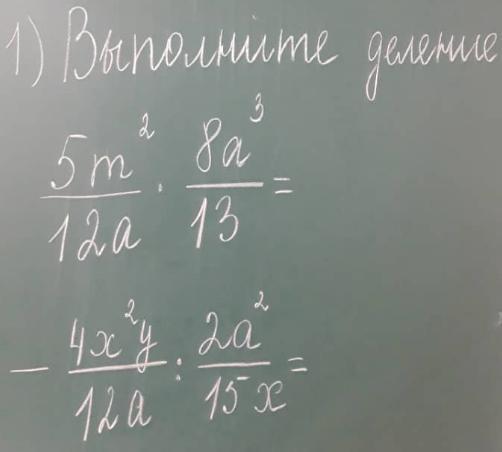 1) Выполните деление
5m²/12a · 8a³/13 =
- 4x²y/12a : 2a²/15x =